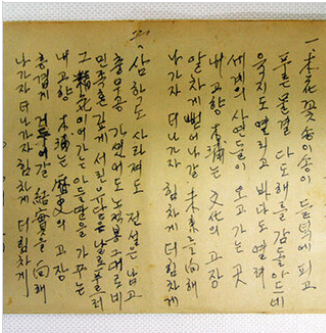 一. 木花꽃 송이송이 들턱에 피고
푸른물결 다도해를 감돌아드네
육지도 열리고 바다도 열려
세계의 사연들이 오고가는 곳
내고향 木浦는 文化의 고장
알차게 뻗어나갈 未來를 向해
나가자 더나가자 힘차게 더힘차게
삼학도 사라져도 전설은 남고
충무공 가셨어도 노적봉 그대로
민족혼 깊게 서린 날로 푸르러
그 이어가는 아들딸을 가꾸는
내고향 木浦는 歷史의 고장
흥겹게 거두어갈 結實을 向해
나가자 더나가자 힘차게 더힘차게